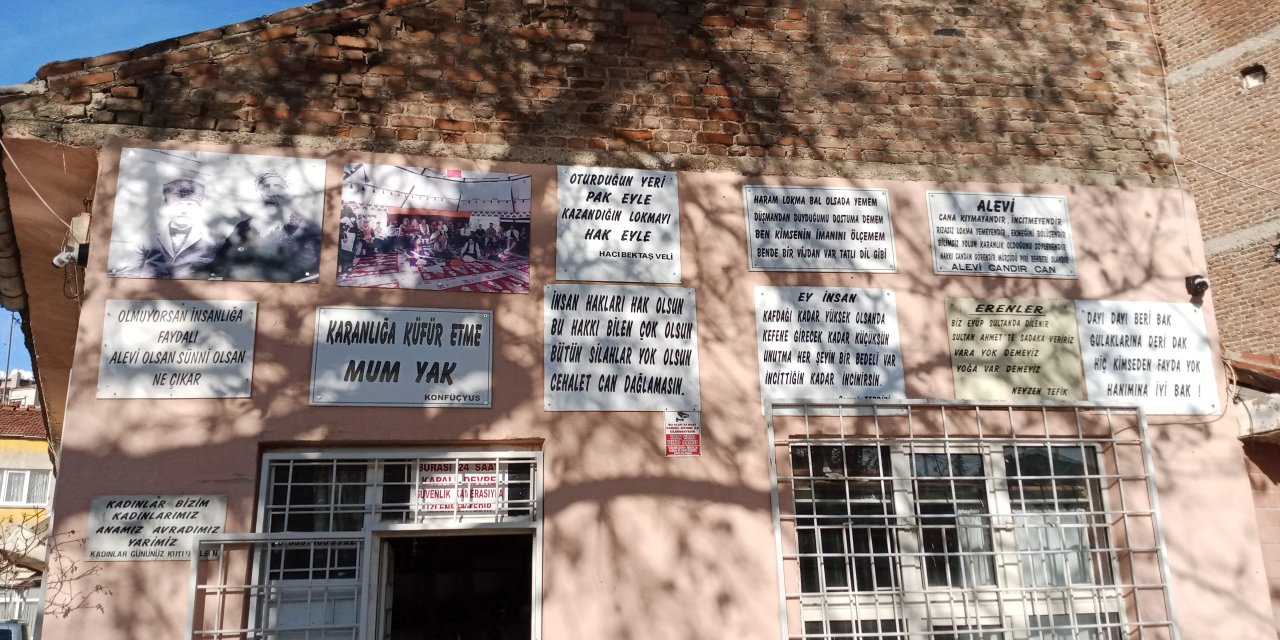 OTURDUĞUN YERİ
PAK EYLE
KAZANDIĞIN LOKMAYI
HAK EYLE
HACI BEKTAŞ VELİ
HARAM LOKMA BAL OLSADA YEMEM
DÜŞMANDAN DUYDUĞUMU DOSTUMA DEMEM
BEN KİMSENİN İMANINI ÖLÇEMEM
BENDE BİR VİJDAN VAR TATLI DİL GİBİ
ALEVİ
CANA KIYMAYANDIR, İNCİTMEYENDİR
RIZASIZ LOKMA YEMEYENDİR, EKMEĞİNİ BÖLÜŞENDİR
BİLİMSİZ YOLUN KARANLIK OLDUĞUNU SÖYLEYENDİR
HAKKI CANDAN GÖRENDİR, MÜRŞÜDÜ PİRİ REHBERİ OLANDIR
ALEVİ CANDIR CAN
OLMUYORSAN İNSANLIĞA
FAYDALI
ALEVİ OLSAN SÜNNİ OLSAN
NE ÇIKAR
KARANLIĞA KÜFÜR ETME
MUM YAK
KONFÜÇYUS
İNSAN HAKLARI HAK OLSUN
BU HAKKI BİLEN ÇOK OLSUN
BÜTÜN SİLAHLAR YOK OLSUN
CEHALET CAN DAĞLAMASIN.
EY İNSAN
KAFDAĞI KADAR YÜKSEK OLSANDA
KEFENE GİRECEK KADAR KÜÇÜKSÜN
UNUTMA HER ŞEYİN BİR BEDELİ VAR
İNCİTTİĞİN KADAR İNCİNİRSİN.
ERENLER
BİZ EYÜP SULTANDA DİLENİR
SULTAN AHMET'TE SADAKA VERİRİZ
VARA YOK DEMEYİZ
YOGA VAR DEMEYİZ
NEYZEN TEFİK
DAYI DAYI BERİ BAK
GULAKLARINA DERİ DAK
HİÇ KİMSEDEN FAYDA YOK
HANIMINA İYİ BAK !
BURASI 24 SAAT
KAPALI DEVRE
GÜVENLİK KAMERASIYLA
KADINLAR BİZİM
KADINLARIMIZ
ANAMIZ AVRADIMIZ
YARİMİZ
KADINLAR GÜNÜNÜZ KUTLU OLSUN